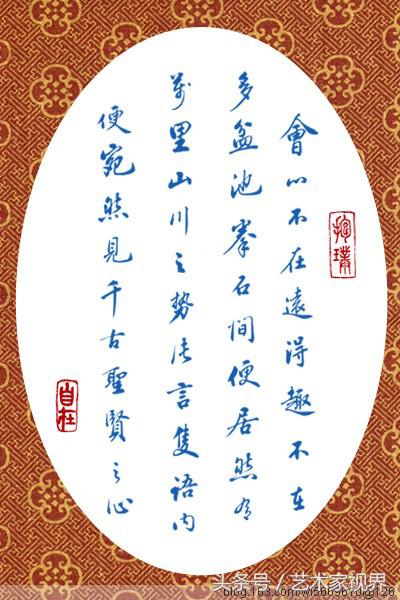 會心不在遠得趣不在
多盆池拳石間便居然有
萬里山川之勢片言隻語內
便宛然見千古聖賢之心
抱璞
自在
头条号／艺术家视界